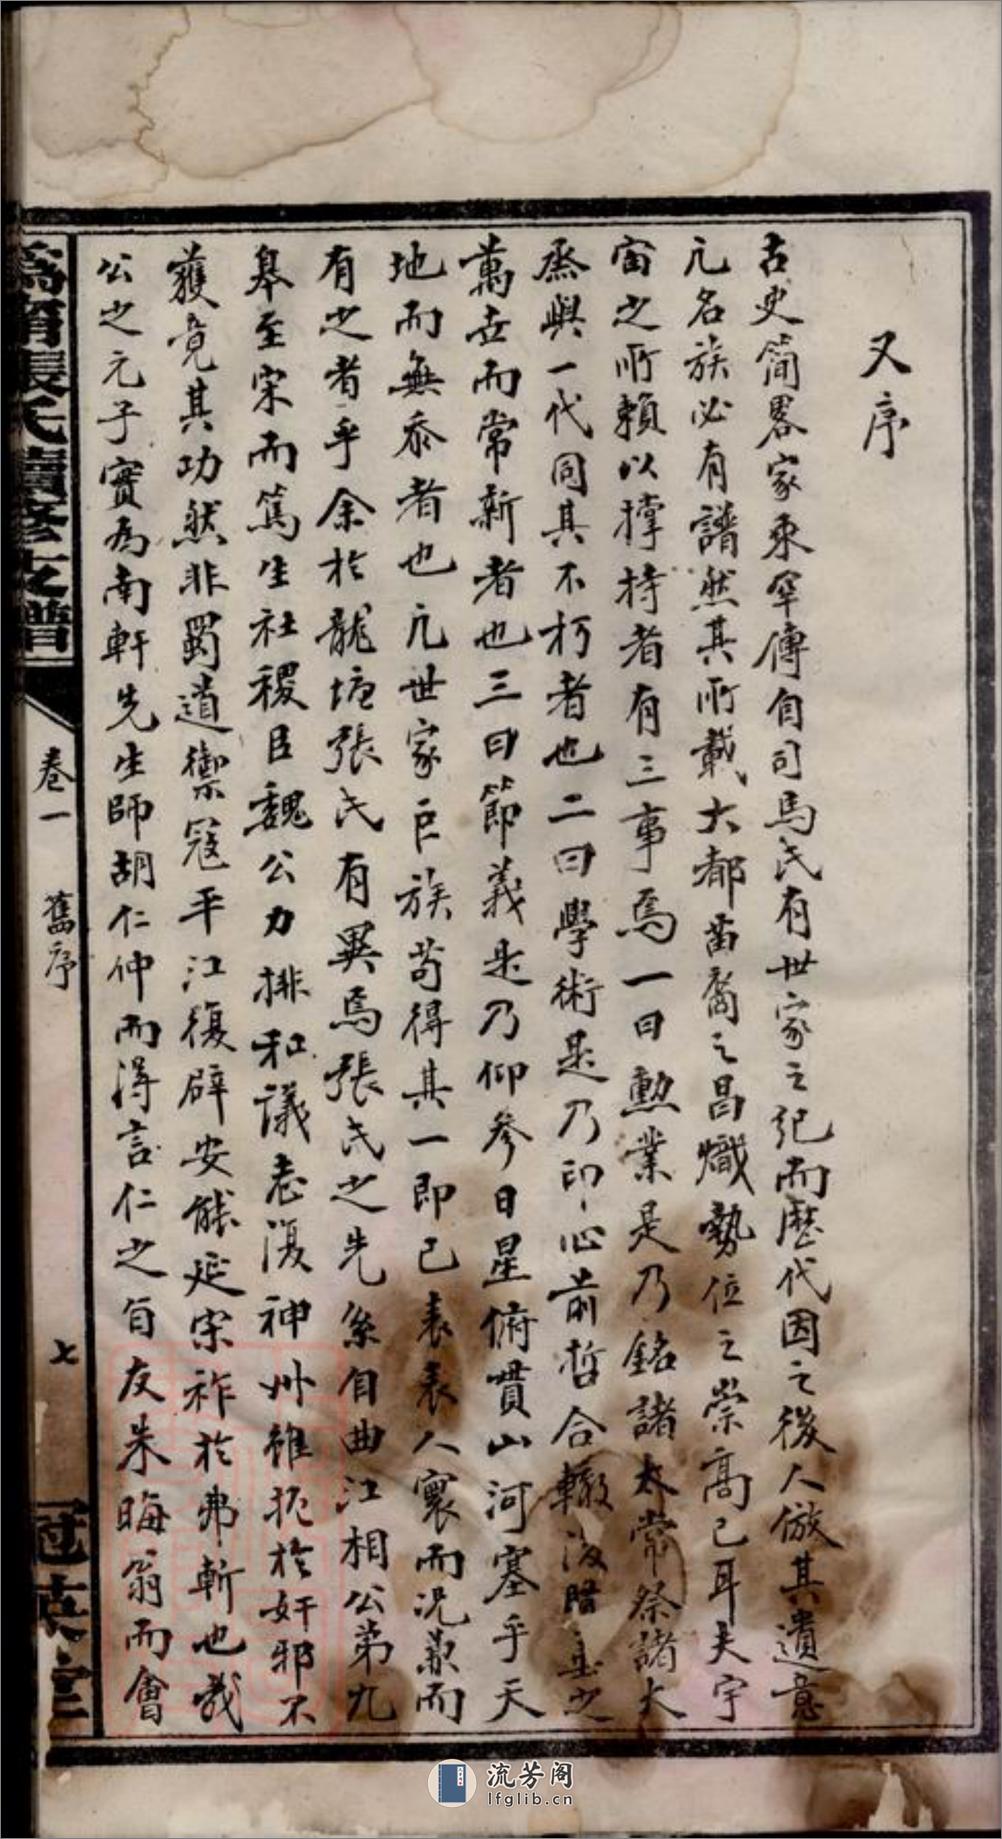 又序
古史簡畧家乘罕傳自司馬氏有世家之紀而歷代因之後人倣其遺意
凢名族必有譜然其所載大都苗裔之昌熾勢位之崇高已耳夫宇
宙之所賴以撑持者有三事焉一曰勲業是乃銘諸太常祭諸大
烝與一代同其不朽者也二曰學術是乃印心前哲合轍後賢垂之
萬世而常新者也三曰節義是乃仰參日星俯貫山河塞乎天
地而無忝者也凢世家巨族苟得其一即已表表人寰而況兼而
有之者乎余於龍塘張氏有異焉張氏之先系自曲江相公第九
皋至宋而篤生社稷臣魏公力排和議志復神州雖扼於奸邪不
獲竟其功然非蜀道禦寇平江復辟安能延宋祚於弗斬也哉
公之元子實為南軒先生師胡仁仲而得言仁之旨友朱晦翁而會
張氏續修支譜
卷一
舊序
七
冠英堂
流芳阁
lfglib.cn